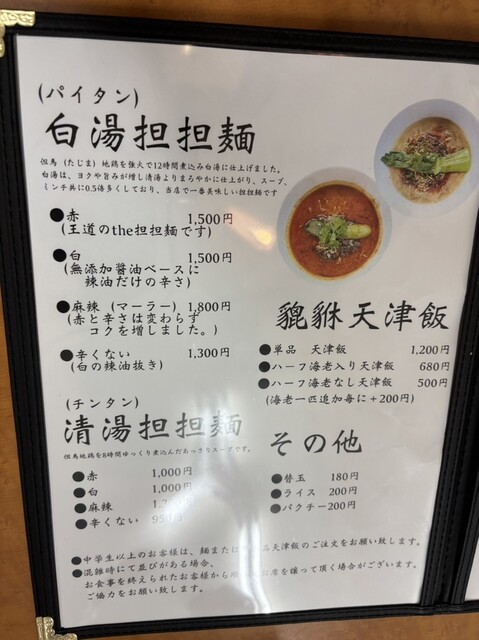 (パイタン)
白湯担担麺
但馬(たじま)地鶏を強火で12時間煮込み白湯に仕上げました。
白湯は、ヨクや旨みが増し清湯よりまろやかに仕上がり、スープ、
ミンチ共に0.5倍多くしており、当店で一番美味しい担担麺です
●赤 1,500円
(王道のthe担担麺です)
●白 1,500円
(無添加醤油ベースに
辣油だけの辛さ)
●麻辣(マーラー) 1,800円
(赤と辛さは変わらず
コクを増しました。)
●辛くない 1,300円
(白の辣油抜き)
(チンタン)
清湯担担麺
但馬地鶏を8時間ゆっくり煮込んだあっさりスープです。
●赤 1,000円
●白 1,000円
●麻辣
●辛くない
貔貅天津飯
●単品 天津飯 1,200円
●ハーフ海老入り天津飯 680円
●ハーフ海老なし天津飯 500円
(海老一匹追加毎に+200円)
その他
●替玉 180円
●ライス 200円
●パクチー200円
●中学生以上のお客様は、麺または 品天津飯のご注文をお願い致します。
●混雑時にて並びがある場合、
お食事を終えられたお客様から お席を譲って頂く場合がございます。
ご協力をお願い致します。